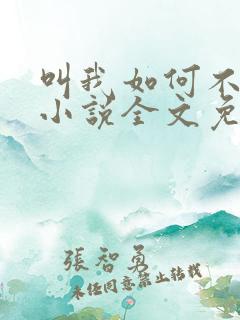 叫我如何不
小说全文免
张智勇
未经同意禁止转载